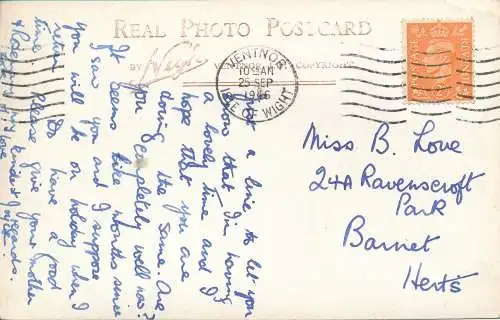 REAL PHOTO POSTCARD
BY Nigh VENTNOR COPYRIGHT
VENTNOR
10 AM
25 SEP
1946
ISLE OF WIGHT
POSTAGE
Just a line to let you
know that I'm having
a lovely time and I
hope that you are
doing the same. Are
you completely well now?
It seems like months since
I saw you and I suppose
you will be on holiday when I
return. Do have a good
time. Please give your mother
my kindest regards.
love
Miss B. Love
24A Ravenscroft
Park
Barnet
Herts